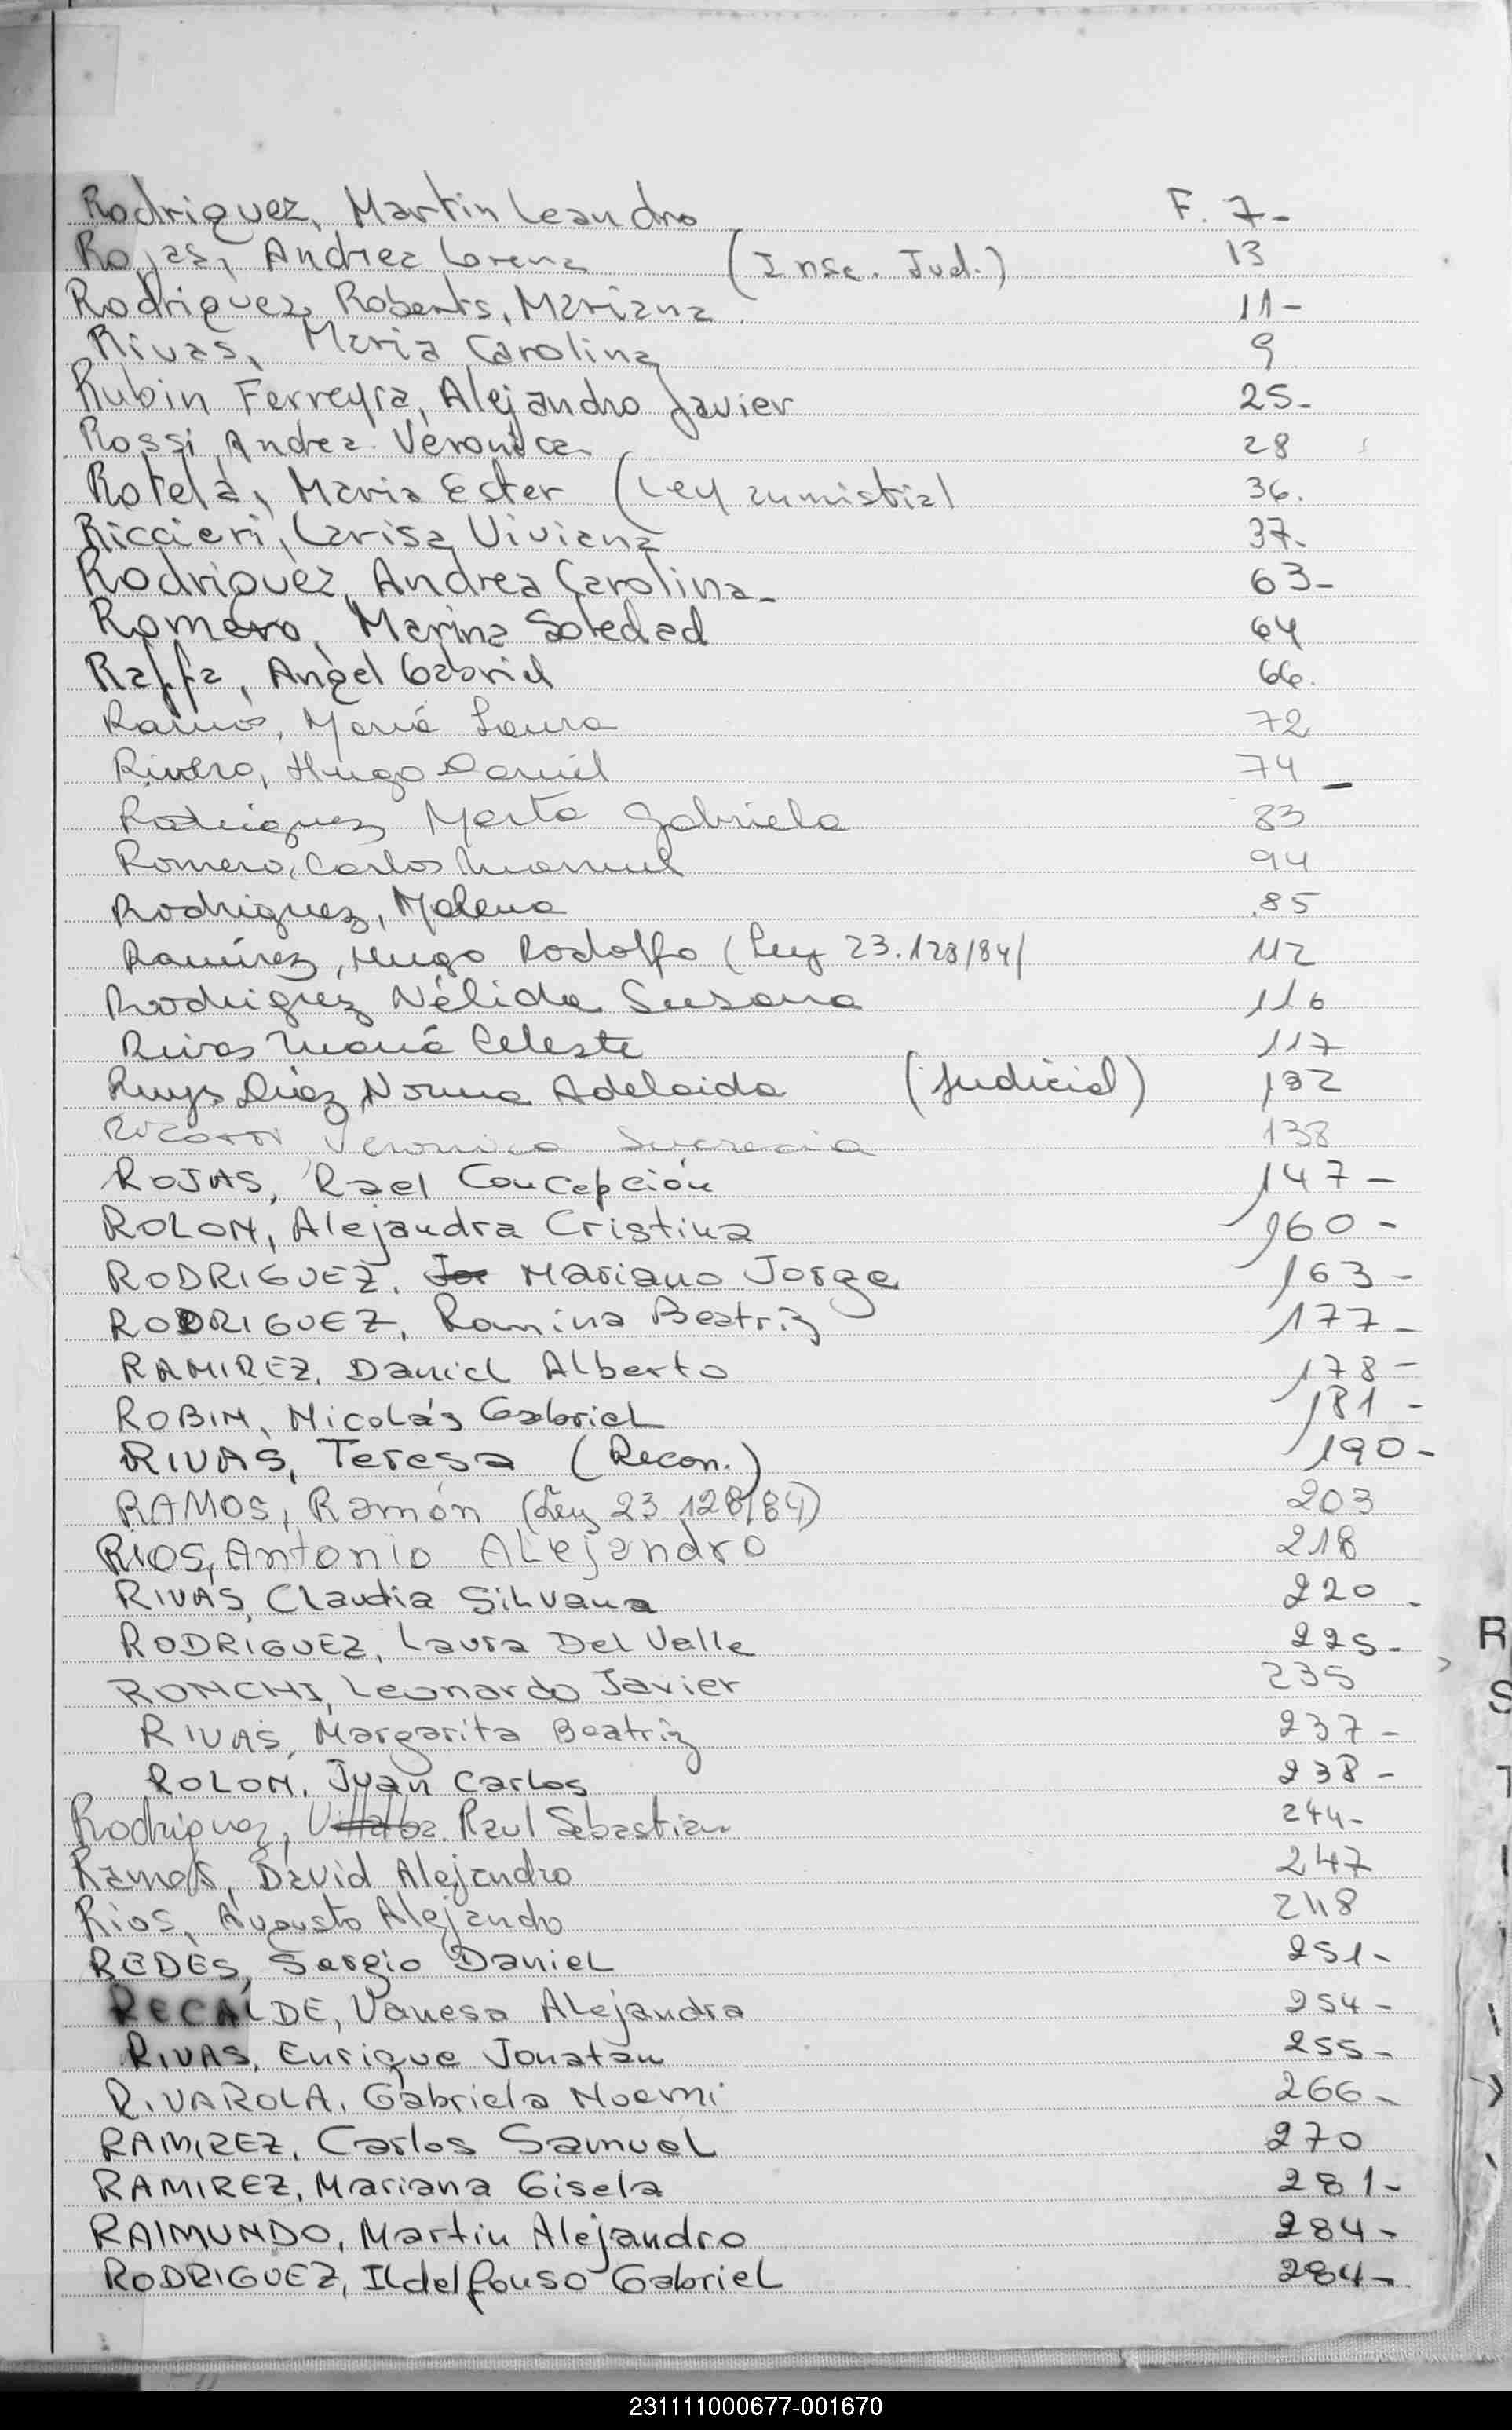 Rodriguez, Martin Leandro F. 7-
Rojas, Andrea Lorena (Insc. Jud.) 13
Rodriguez Roberts, Mariana 11-
Rivas, Maria Carolina 9
Rubin Ferreyra, Alejandro Javier 25-
Rossi, Andrea Veronica 28
Rotela, Maria Ester (Ley 36.
Riccieri, Larisa Viviana 37-
Rodriguez, Andrea Carolina- 63-
Romero, Marina Soledad 64
Raffa, Angel Gabriel 66.
Ramos, María Laura 72
Rivero, Hugo Daniel 74-
Rodriguez Marta Gabriela 83
Romero, Carlos Manuel 94
Rodriguez, Malena 85
Ramírez, Hugo Rodolfo (Ley 23.128/84) 112
Rodriguez Nélida Susana 116
Rivas María Celeste 117
Ruys Diaz Norma Adelaida (Judicial) 132
Veronica Lucrecia 138
ROJAS, Rael Concepción 147-
ROLON, Alejandra Cristina 160-
RODRIGUEZ, Jor Mariano Jorge 163-
RODRIGUEZ, Romina Beatriz 177-
RAMIREZ, Daniel Alberto 178-
ROBIN, Nicolás Gabriel 181-
RIVAS, Teresa (Recon.) 190-
RAMOS, Ramón (Ley 23 128/84) 203
RIOS, Antonio Alejandro 218
RIVAS, Claudia Silvana 220-
RODRIGUEZ, Laura Del Valle 225-
R
RONCHI, Leonardo Javier 235
S
RIVAS, Margarita Beatriz 237-
ROLON, Juan Carlos 238-
T
Rodriguez, Villalba Raul Sebastian 244-
Ramos, David Alejandro 247
Rios, Augusto Alejandro 248
REDES, Sergio Daniel 251-
RECALDE, Vanesa Alejandra 254-
RIVAS, Enrique Jonatan 255-
RIVAROLA, Gabriela Noemi 266-
RAMIREZ, Carlos Samuel 270
RAMIREZ, Mariana Gisela 281-
RAIMUNDO, Martin Alejandro 284-
RODRIGUEZ, Ildelfonso Gabriel 284-
231111000677-001670